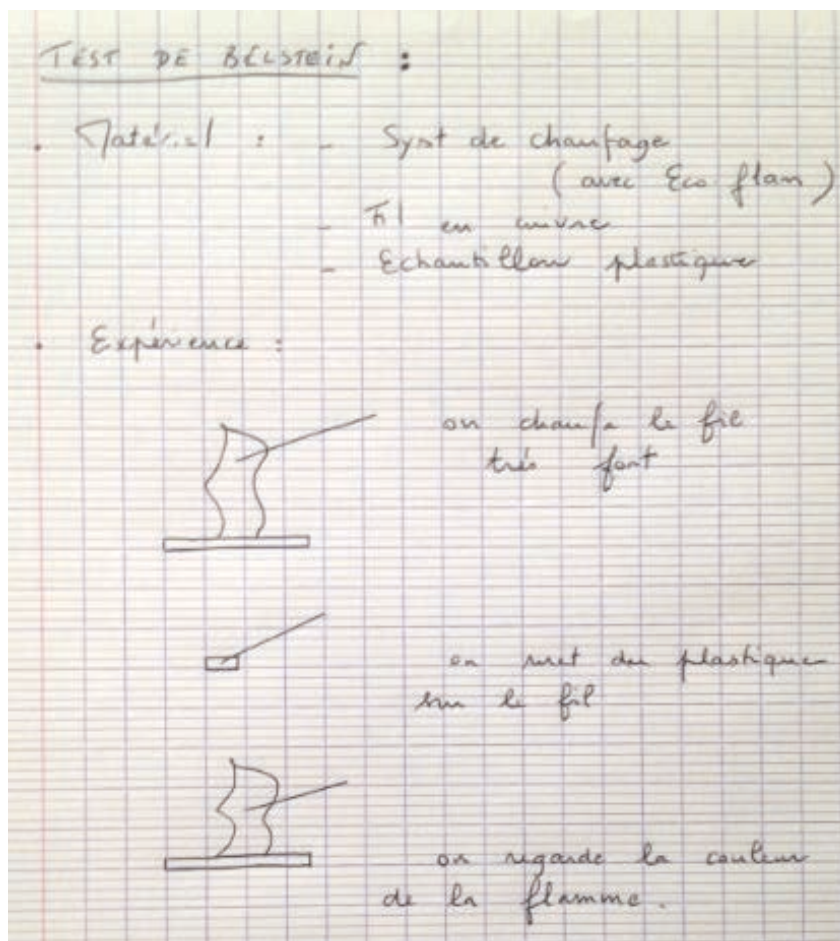 TEST DE BELSTEIN :
. Matériel : - Syst de chauffage
( avec Eco flam )
- Fil en cuivre
- Echantillon plastique
. Expérience :
on chauffe le fil
très fort
on met du plastique
sur le fil
on regarde la couleur
de la flamme.